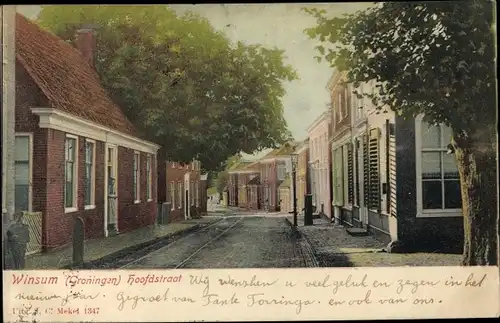 Winsum (Groningen) Hoofdstraat Wij wenschen u veel geluk en zegen in het
nieuwe jaar. Gegroet van Tante en ook van ons.
C. Mekel 1347